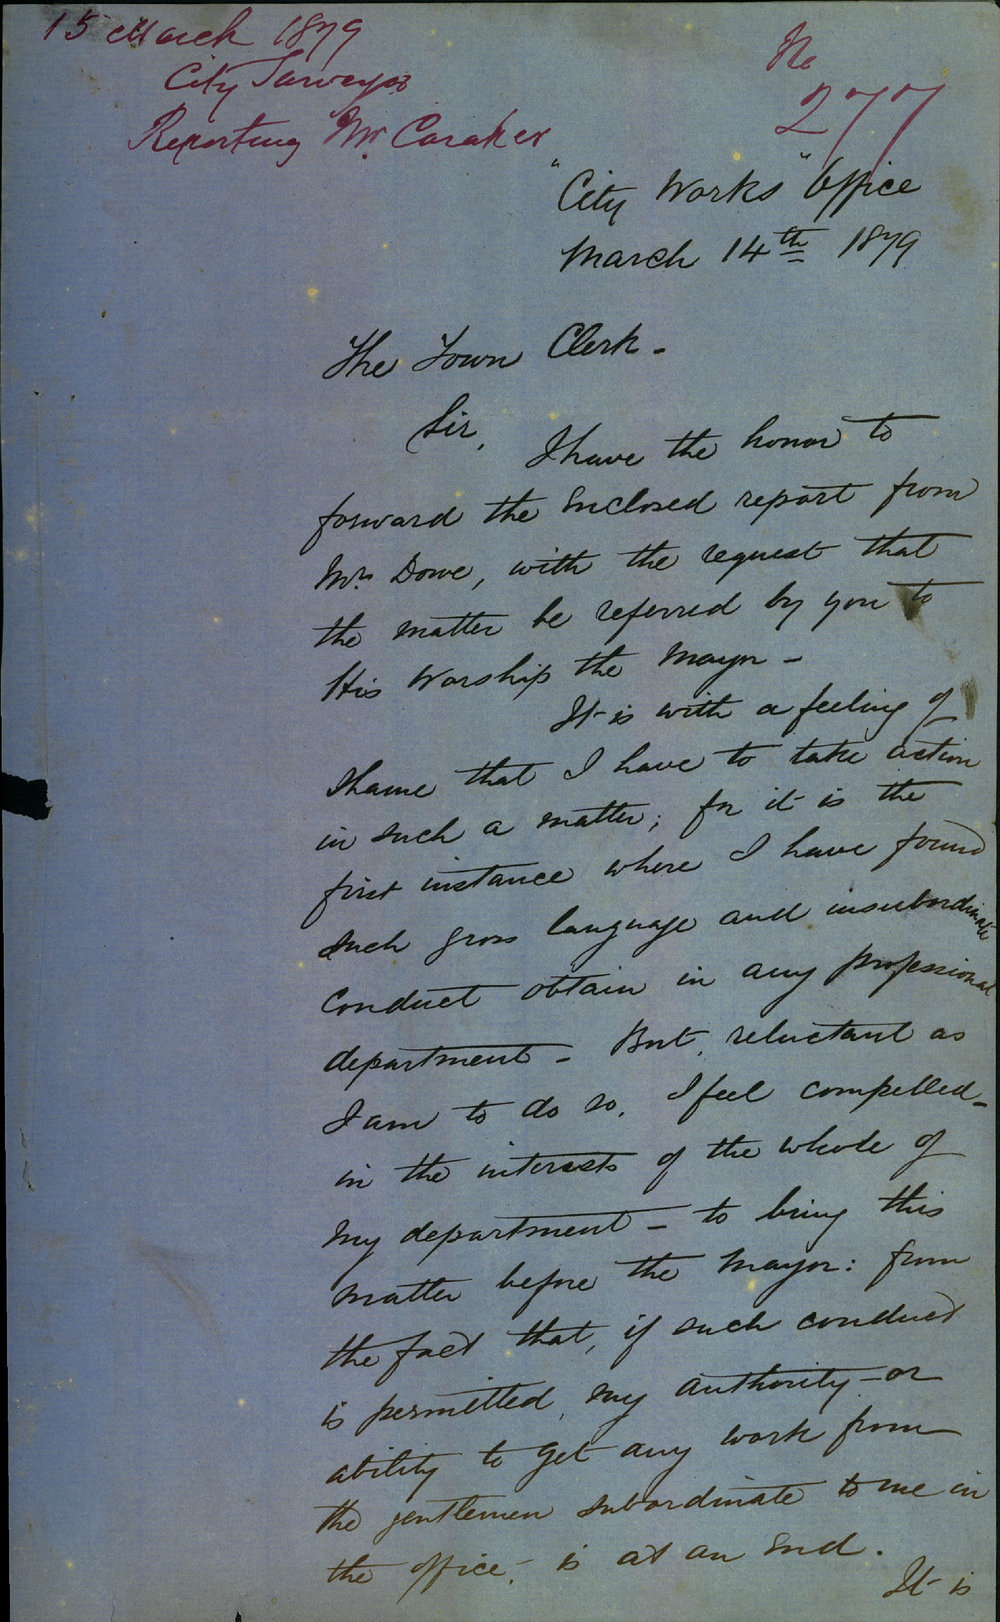 15 March 1879
City Surveyor
Reporting Mr. Caraker
No
277
"City Works" Office
March 14th 1879
The Town Clerk -
Sir,
I have the honor to
forward the enclosed report from
Mr Dowe, with the request that
the matter be referred by you to
His Worship the Mayor -
It is with a feeling of
shame that I have to take action
in such a matter; for it is the
first instance where I have found
such gross language and insubordinate
conduct obtain in any professional
department - But, reluctant as
I am to do so, I feel compelled -
in the interests of the whole of
my department - to bring this
matter before the Mayor: from
the fact that, if such conduct
is permitted, my authority - or
ability to get any work from
the gentlemen subordinate to me in
the office, - is at an end.
It is